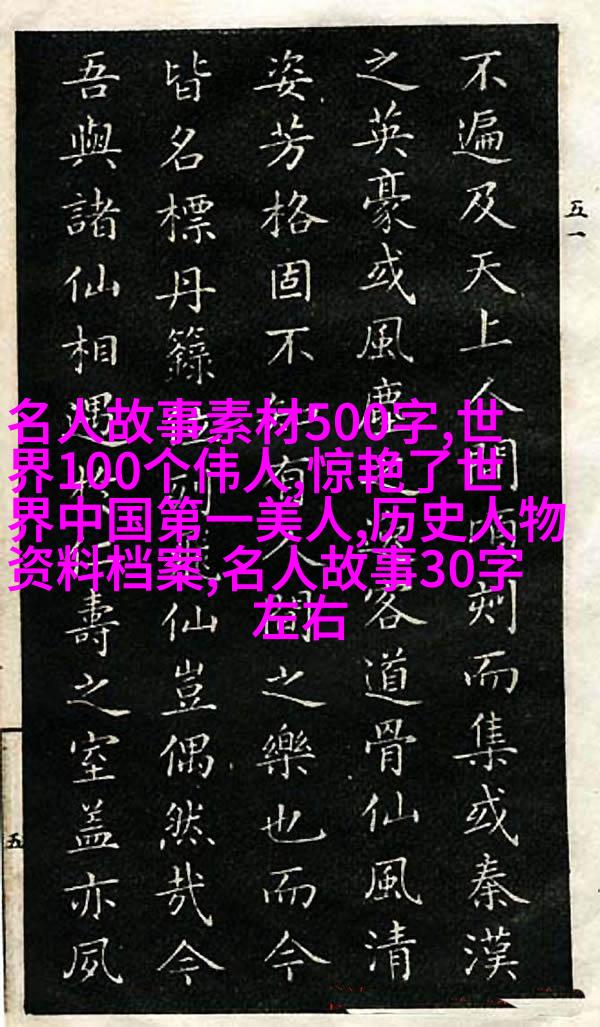 不遍及天上人間頃刻而集或秦漢
之英豪或風塵之客道骨仙風清
姿芳格固不知有人間之樂也而今
皆名標丹籙列仙豈偶然哉今
吾與諸仙相遇於仁壽之室蓋亦夙
五一
五
名人故事素材500字,世
界100个伟人,惊艳了世
界中国第一美人,历史人物
资料档案,名人故事30字
左右